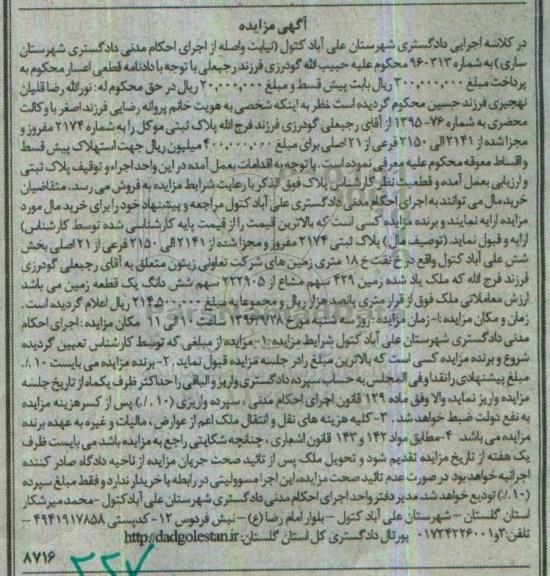 آگهی مزایده
در کلاسه اجرایی دادگستری شهرستان علی آباد کتول (نیابت واصله از اجرای احکام مدنی دادگستری شهرستان
ساری) به شماره ۹۶۰۳۱۳ محکوم علیه حبیب الله گودرزی فرزند رجبعلی با توجه با دادنامه قطعی اعسار محکوم به
پرداخت مبلغ ۳۰۰,۰۰۰,۰۰۰ ریال بابت پیش قسط و مبلغ ۲۰,۰۰۰,۰۰۰ ریال در حق محکوم له: نورالله رضا قلیان
نهجیری فرزند حسین محکوم گردیده است.نظر به اینکه شخصی به هویت خانم پروانه رضایی فرزند اصغر با وکالت
محضری به شماره ۷۶-۱۳۹۵ از آقای رجبعلی گودرزی فرزند فرج الله پلاک ثبتی موکل را به شماره ۲۱۷۴ مفروز و
مجزا شده از ۲۱۴۱ الی ۲۱۵۰ فرعی از ۲۱ اصلی برای مبلغ ۴۰۰,۰۰۰,۰۰۰ میلیون ریال جهت استهلاک پیش قسط
و اقساط معوقه محکوم علیه معرفی نموده است. با توجه به اقدامات بعمل آمده در این واحد اجراء و توقیف پلاک ثبتی
و ارزیابی بعمل آمده و قطعیت نظر کارشناس پلاک فوق الذکر با رعایت شرایط مزایده به فروش می رسد. متقاضیان
خرید مال می توانند به اجرای احکام مدنی دادگستری علی آباد کتول مراجعه و پیشنهاد خود را برای خرید مال مورد
مزایده ارایه نمایند و برنده مزایده کسی است که بالاترین قیمت را از قیمت پایه کارشناسی شده توسط کارشناس)
ارایه و قبول نماید. (توصیف مال) پلاک ثبتی ۲۱۷۴ مفروز و مجزا شده از ۲۱۴۱ الی ۲۱۵۰ فرعی از ۲۱ اصلی بخش
شش علی آباد کتول واقع در خ نفت خ ۱۸ متری زمین های شرکت تعاونی زیتون متعلق به آقای رجبعلی گودرزی
فرزند فرج الله که ملک یاد شده زمین ۴۲۹ سهم مشاع از ۲۲۲۹۰۵ سهم شش دانگ یک قطعه زمین می باشد
ارزش معاملاتی ملک فوق از قرار متری پانصد هزار ریال و مجموعا به مبلغ ۲۱۴,۵۰۰,۰۰۰ ریال اعلام گردیده است.
زمان و مکان مزایده :۱- زمان مزایده : روز سه شنبه مورخ ۱۳۹۶/۹/۲۸ ساعت ۱۰ الی ۱۱ مکان مزایده : اجرای احکام
مدنی دادگستری شهرستان علی آباد کتول شرایط مزایده :۱- مزایده از مبلغی که توسط کارشناس تعیین گردیده
شروع و برنده مزایده کسی است که بالاترین مبلغ را در جلسه مزایده قبول نماید. ۲- برنده مزایده می بایست ۱۰٪
مبلغ پیشنهادی را نقدا و فی المجلس به حساب سپرده دادگستری واریز و الباقی را حداکثر ظرف یکماه از تاریخ جلسه
مزایده واریز نماید، والا وفق ماده ۱۲۹ قانون اجرای احکام مدنی ، سپرده واریزی (۱۰٪) پس از کسر هزینه مزایده
به نفع دولت ضبط خواهد شد . ۳- کلیه هزینه های نقل و انتقال ملک اعم از عوارض ، مالیات و غیره به عهده برنده
مزایده می باشد. ۴-مطابق مواد ۱۴۲ و ۱۴۳ قانون اشعاری ، چنانچه شکایتی راجع به مزایده باشد می بایست ظرف
یک هفته از تاریخ مزایده تقدیم شود و تحویل ملک پس از تائید صحت جریان مزایده از ناحیه دادگاه صادر کننده
اجرائیه خواهد بود. در صورت عدم تائید صحت مزایده، این اجرا مسوولیتی در رابطه با خریدار ندارد و فقط مبلغ سپرده
(۱۰٪) تودیع خواهد شد. مدیر دفتر واحد اجرای احکام مدنی دادگستری شهرستان علی آباد کتول - محمد میرشکار
استان گلستان – شهرستان علی آباد کتول – بلوار امام رضا (ع) – نبش فردوس ۱۲- کدپستی ۴۹۴۱۹۱۷۸۵۸ –
تلفن:۳و۰۱۷۳۴۲۲۶۰۰۱ پورتال دادگستری کل استان گلستان: http://dadgolestan.ir
۸۷۱۶
۲۲۷